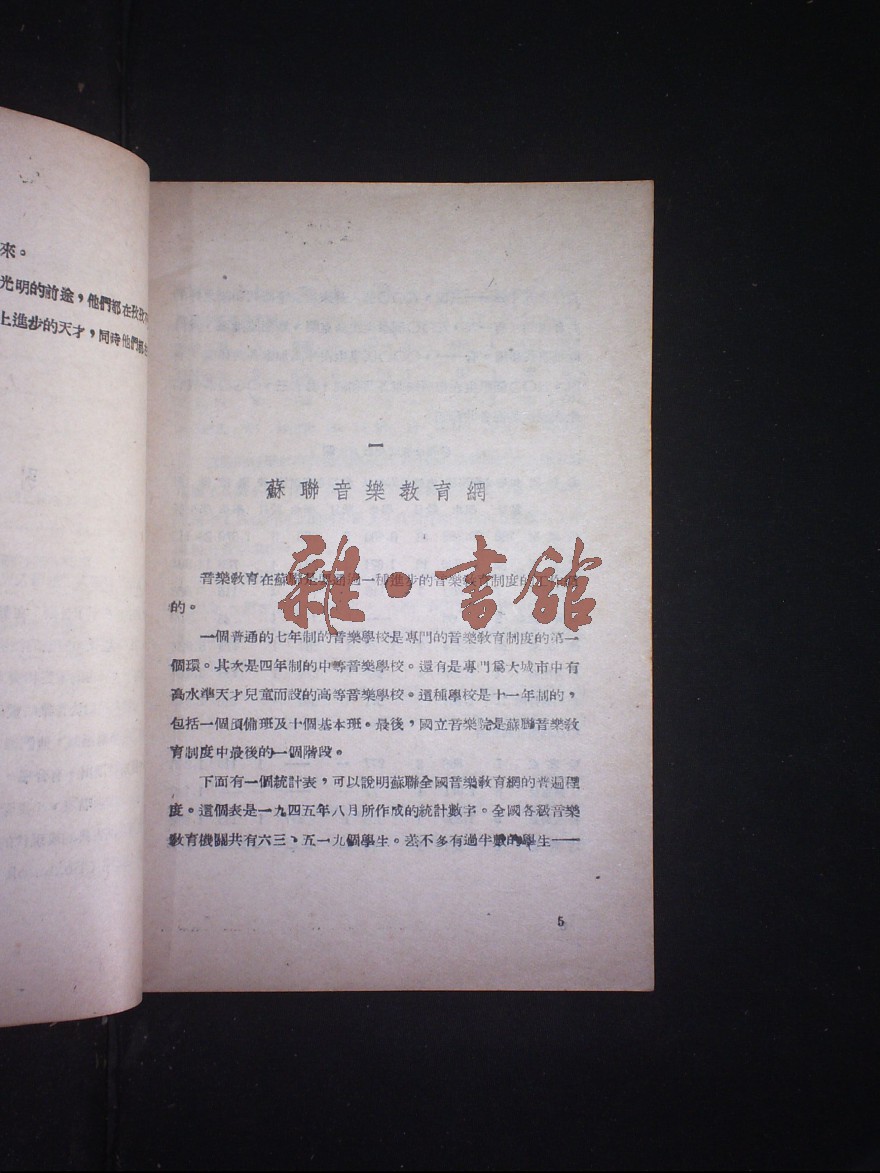 來。
光明的前途，他們都在孜孜
上進步的天才，同時他們都
一
蘇聯音樂教育網
音樂教育在蘇聯是 通過一種進步的音樂教育制度的
的。
一個普通的七年制的音樂學校是專門的音樂教育制度的第一
個環。其次是四年制的中等音樂學校。還有是專門爲大城市中有
高水準天才兒童而設的高等音樂學校。這種學校是十一年制的，
包括一個預備班及十個基本班。最後，國立音樂院是蘇聯音樂教
育制度中最後的一個階段。
下面有一個統計表，可以說明蘇聯全國音樂教育網的普遍程
度。這個表是一九四五年八月所作成的統計數字。全國各級音樂
教育機關共有六三、五一九個學生。差不多有過半數的學生——
5
雜·書館